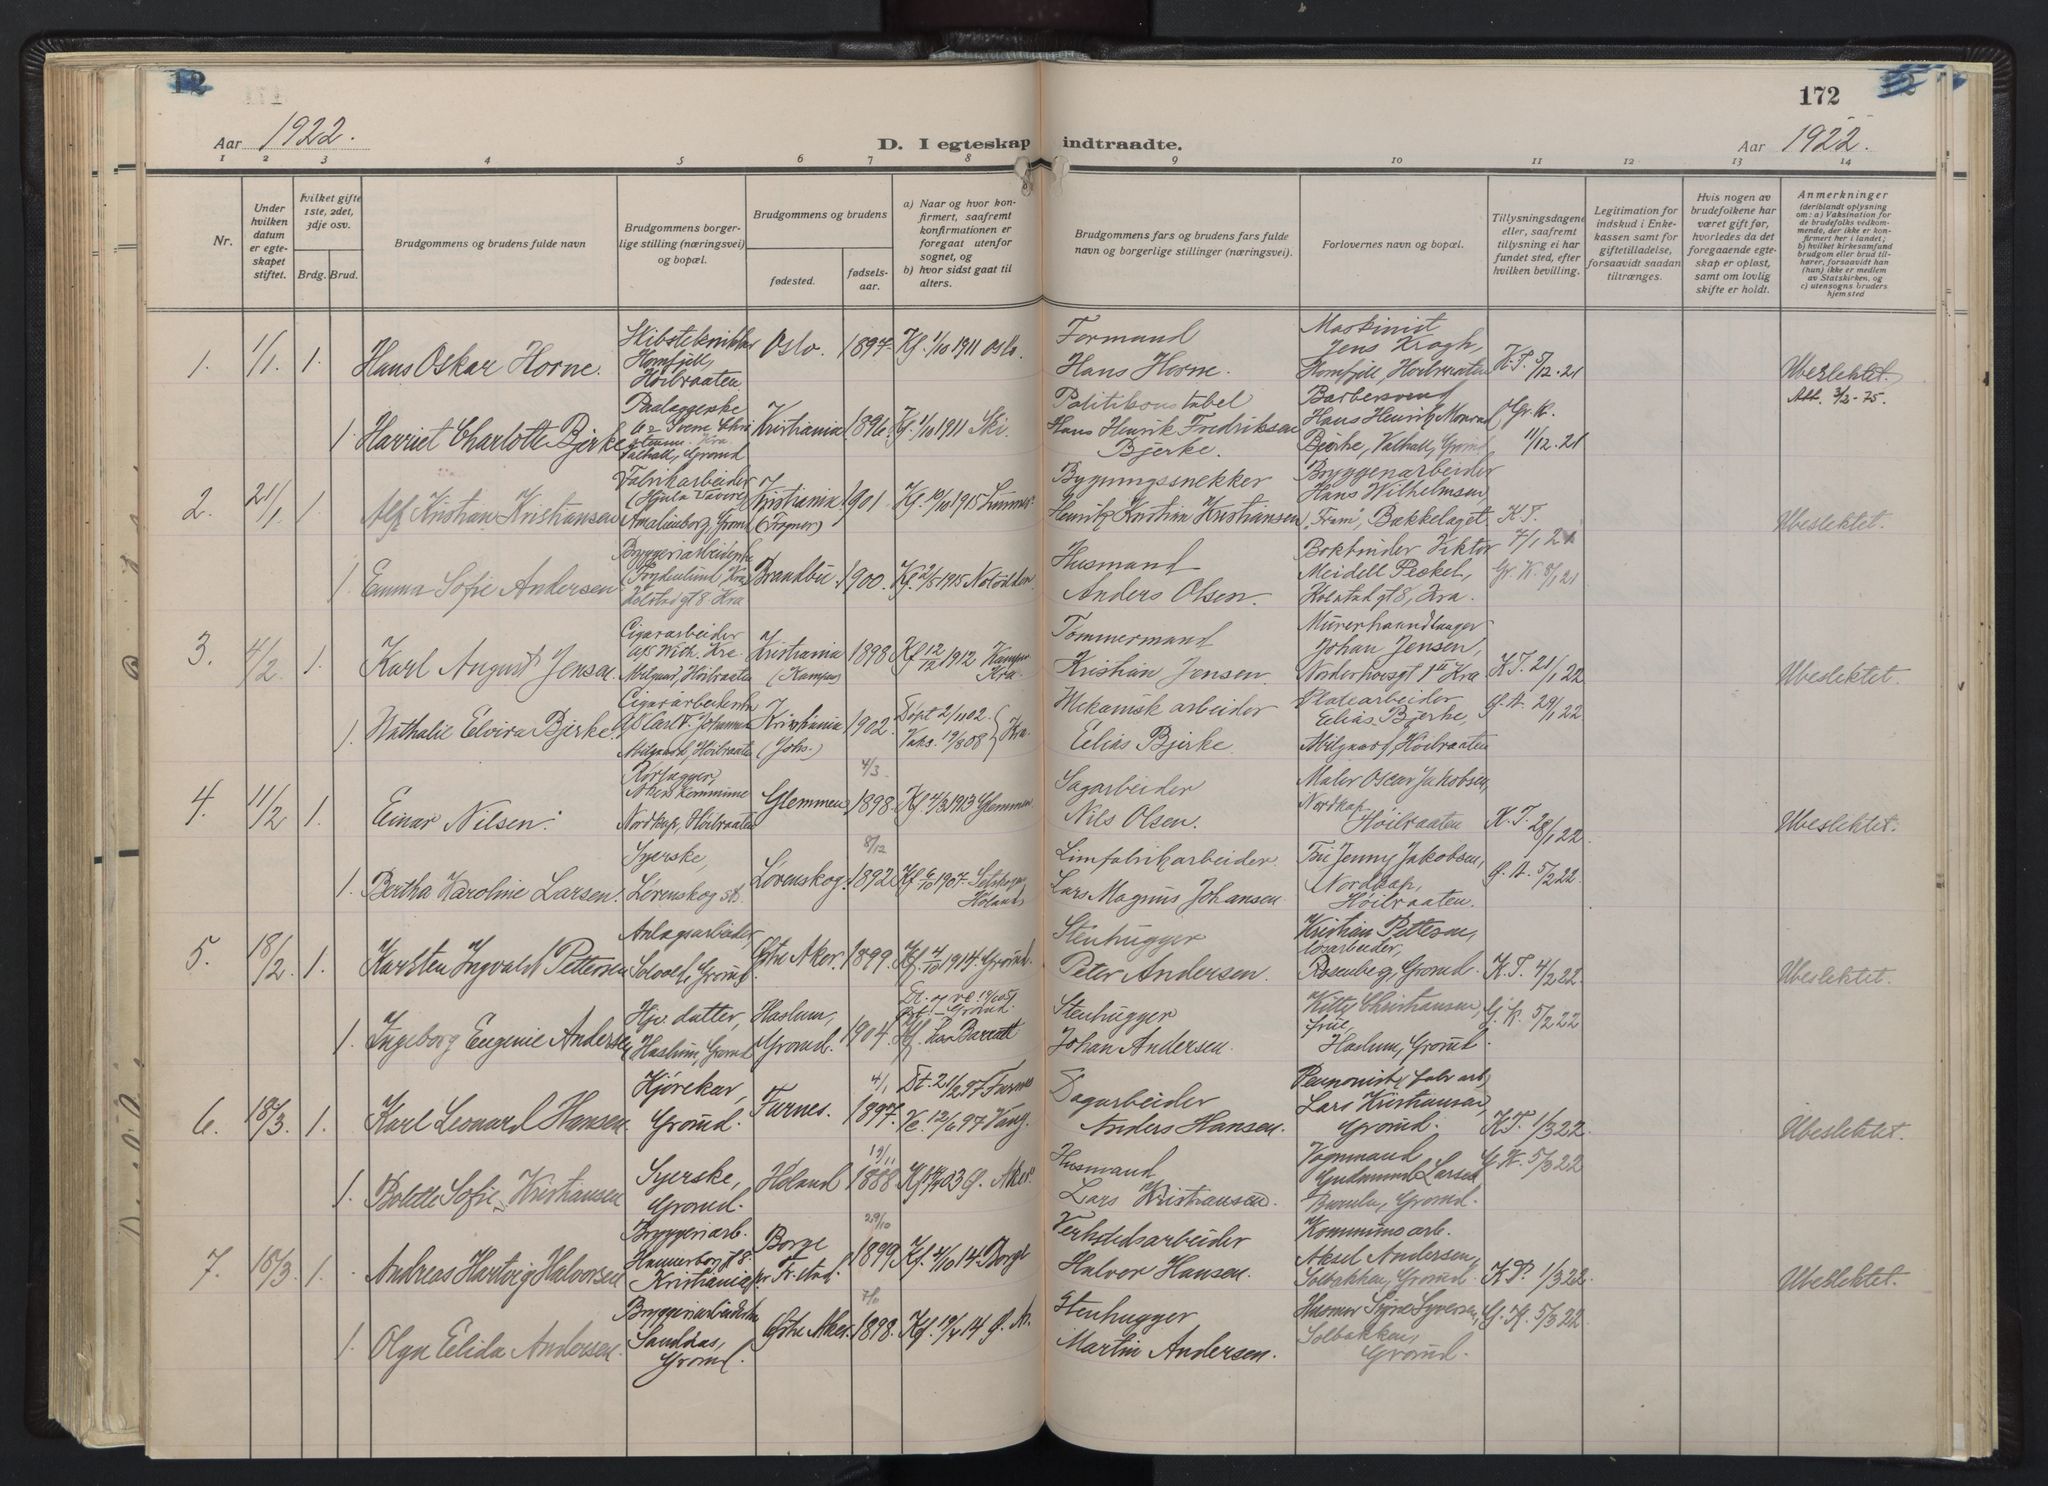 172
Aar 1922.
D. I egteskap indtraadte.
Aar 1922.
1 2 3 4 5 6 7 8 9 10 11 12 13 14
Nr.
Under hvilken datum er egteskapet stiftet.
hvilket gifte 1ste, 2det, 3dje osv.
Brdg. Brud.
Brudgommens og brudens fulde navn
Brudgommens borgerlige stilling (næringsvei) og bopæl.
Brudgommens og brudens
fødested.
fødselsaar.
a) Naar og hvor konfirmert, saafremt konfirmationen er foregaat utenfor sognet, og
b) hvor sidst gaat til alters.
Brudgommens fars og brudens fars fulde navn og borgerlige stillinger (næringsvei).
Forlovernes navn og bopæl.
Tillysningsdagene eller, saafremt tillysning ei har fundet sted, efter hvilken bevilling.
Legitimation for indskud i Enkekassen samt for giftetilladelse, forsaavidt saadan tiltrænges.
Hvis nogen av brudefolkene har været gift før, hvorledes da det foregaaende egteskap er opløst, samt om lovlig skifte er holdt.
Anmerkninger
(deriblandt oplysning om: a) Vaksination for de brudefolk vedkommende, der ikke er konfirmert her i landet; b) hvilket kirkesamfund brudgom eller brud tilhører, forsaavidt han (hun) ikke er medlem av Statskirken, og c) utensogns bruders hjemsted
1. 1/1. 1. Hans Oskar Horne. Hornfjell, Høibraaten Oslo. 1897. Kf. 1/10 1911 Oslo. Formand Hans Horne. Maskinist Jens Kragh, Hornfjell, Høibraaten K.T. 5/12-21 Ubeslektet. 3/2-75.
1 Harriet Charlotte Bjerke Valhall, Grorud Kristiania 1896. Kf. 1/10 1911 Ski. Politikonstabel Hans Henrik Fredriksen Bjerke. Barbersvend Hans Henrik Monrad Bjerke, Valhall, Grorud Gr. K. 11/12-21
2. 21/1 1. Alf Kristian Kristiansen Fabrikarbeider (Hjula Væveri) Amalienborg, Grorud Kristiania (Frogner) 1901. Kf. 10/10 1915 Bygningssnekker Henrik Kristian Kristiansen Bryggeriarbeider Hans Wilhelmsen "Fram", Bækkelaget K.T. 7/1 21 Ubeslektet.
1. Emma Sofie Andersen. Bryggeriarbeiderske Frydenlund, Kra Kolstadgt 8. Kra Brandbu 1900. Kf. 2/5 1915 Notodden Husmand Anders Olsen. Bokbinder Viktor Meidell Peckel, Kolstadgt 8, Kra. Gr. K. 8/1 21
3. 4/2. 1. Karl August Jensen. Cigararbeider Milgaard, Høibraaten Kristiania (Kampen) 1898 Kf 12/12 1912 Kampen Kra. Tømmermand Kristian Jensen. Murerhaandlanger Johan Jensen, Norderhovsgt 1 III Kra K.T. 21/1 22 Ubeslektet.
1. Nathalie Elvira Bjerke. Cigararbeiderske Milgaard, Høibraaten Kristiania (Johs.) 1902. Døpt 2/11 02. Vaks. 19/8 08 } Kra Mekanisk arbeider Elias Bjerke. Platearbeider Elias Bjerke, Milgaard, Høibraaten G.K. 29/1 22
4. 11/2 1. Einar Nilsen. Rørlægger, Akers Kommune Nordkap, Høibraaten Glemmen 4/3 1898. Kf. 4/3 1913 Glemmen Sagarbeider Nils Olsen. Maler Oscar Jakobsen, Nordkap Høibraaten K.T. 28/1 22 Ubeslektet.
1. Bertha Karoline Larsen. Syerske, Lørenskog st. Lørenskog. 8/12 1892 Kf. 6/10 1907. Setskogen Høland Limfabrikarbeider. Lars Magnus Johansen Fru Jenny Jakobsen, Nordkap, Høibraaten. G.K. 5/2 22.
5. 18/2 1. Karsten Ingvald Pettersen Anlægsarbeider, Solvold, Grorud. Østre Aker. 1899 Kf. 4/10 1914. Grorud. Stenhugger Peter Andersen. Kristian Pettesen, løsarbeider, Rosenberg, Grorud. K.T. 4/2 22. Ubeslektet.
1. Ingeborg Eugenie Andersen Hjv. datter, Haslum, Grorud Haslum, Grorud. 1904. Stenhugger Johan Andersen. Kitty Christiansen, frue, Haslum, Grorud. G.K. 5/2 22
6. 18/3. 1. Karl Leonard Hansen. Kjørekar, Grorud. Furnes. 4/1 1897. Dt. 21/2 97. Furnes Vc. 12/6 97 Vang. Dagarbeider Anders Hansen. Lars Kristiansen, Grorud. K.T. 1/3 22. Ubeslektet.
1. Bolette Sofie Kristiansen Syerske, Grorud. Høland 19/11 1888 Ø. Aker. Husmand Lars Kristiansen. Vognmand Gudmund Larsen Grorud. G.K. 5/3 22
7. 18/3. 1. Andreas Hartvig Halvorsen Bryggeriarb. Hammerborg 8. Kristiania Borge pr Fr.stad. 29/10 1899 Kf. 4/10 14. Borge Verkstedsarbeider Halvor Hansen. Kommunearb. Aksel Andersen, Solbakken, Grorud. K.T. 1/3 22. Ubeslektet.
1. Olga Elida Andersen. Bryggeriarbeiderske Sandaas, Grorud. Østre Aker. 7/11 1898. Kf. 19/4 14 Ø.A. Stenhugger Martin Andersen. Husmor Signe Syversen, Solbakken, Grorud. G.K. 5/3 22.